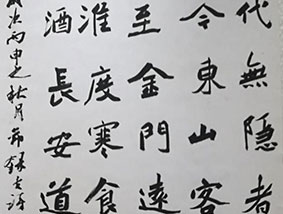 代無隱者
令東山客
至金門遠
淮度寒食
酒長安道
次丙申之秋月節錄